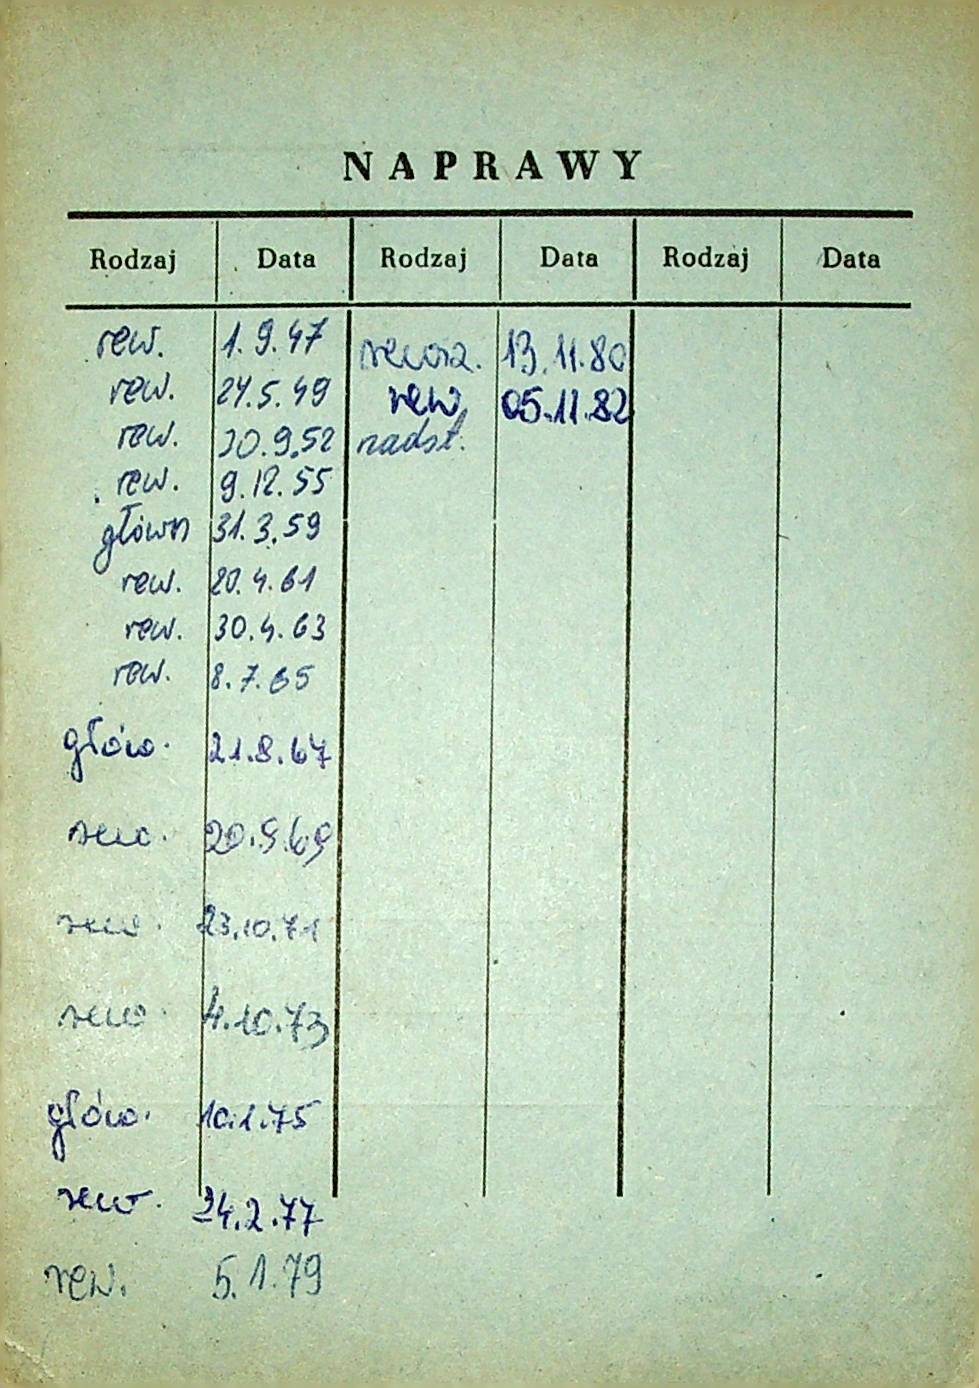 NAPRAWY
Rodzaj Data Rodzaj Data Rodzaj Data
rew. 1.9.47
rew. 24.5.49
rew. 30.9.52
rew. 9.12.55
główn 31.3.59
rew. 20.4.61
rew. 30.4.63
rew. 8.7.65
głów. 21.8.67
rew. 20.9.69
rew. 23.10.71
rew. 4.10.73
głów. 10.1.75
rew. 24.2.77
rew. 5.1.79
13.11.80
rew 05.11.82
nadst.